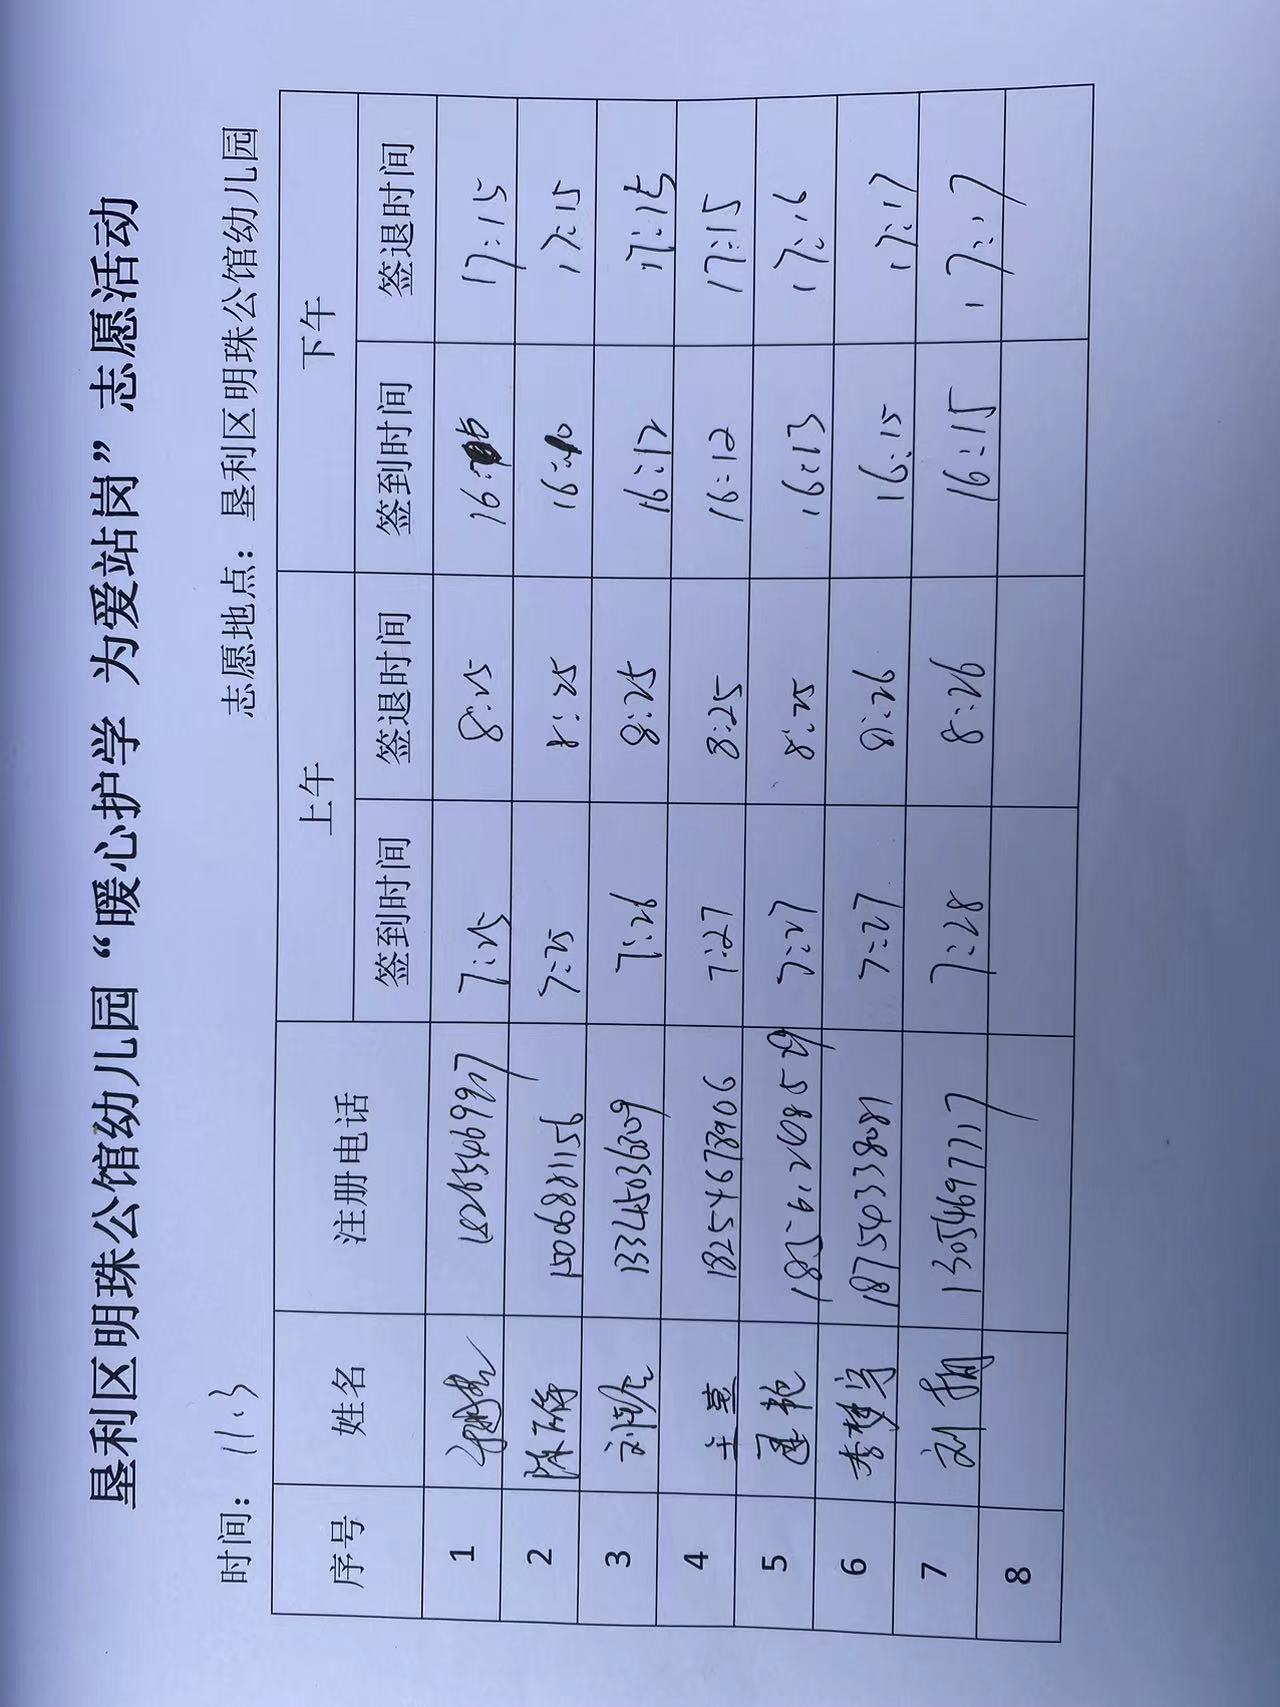 垦利区明珠公馆幼儿园“暖心护学 为爱站岗”志愿活动
时间： 11.3 志愿地点：垦利区明珠公馆幼儿园
序号 姓名 注册电话 上午 下午
签到时间 签退时间 签到时间 签退时间
1 7:25 8:25 16: 17:15
2 15006881156 7:25 8:25 16:10 17:15
3 13345036809 7:26 8:25 16:12 17:15
4 18254673906 7:27 8:25 16:12 17:15
5 7:27 8:25 16:13 17:16
6 李梦宁 18754033808 7:27 8:26 16:15 17:17
7 刘 13054697717 7:28 8:26 16:15 17:17
8